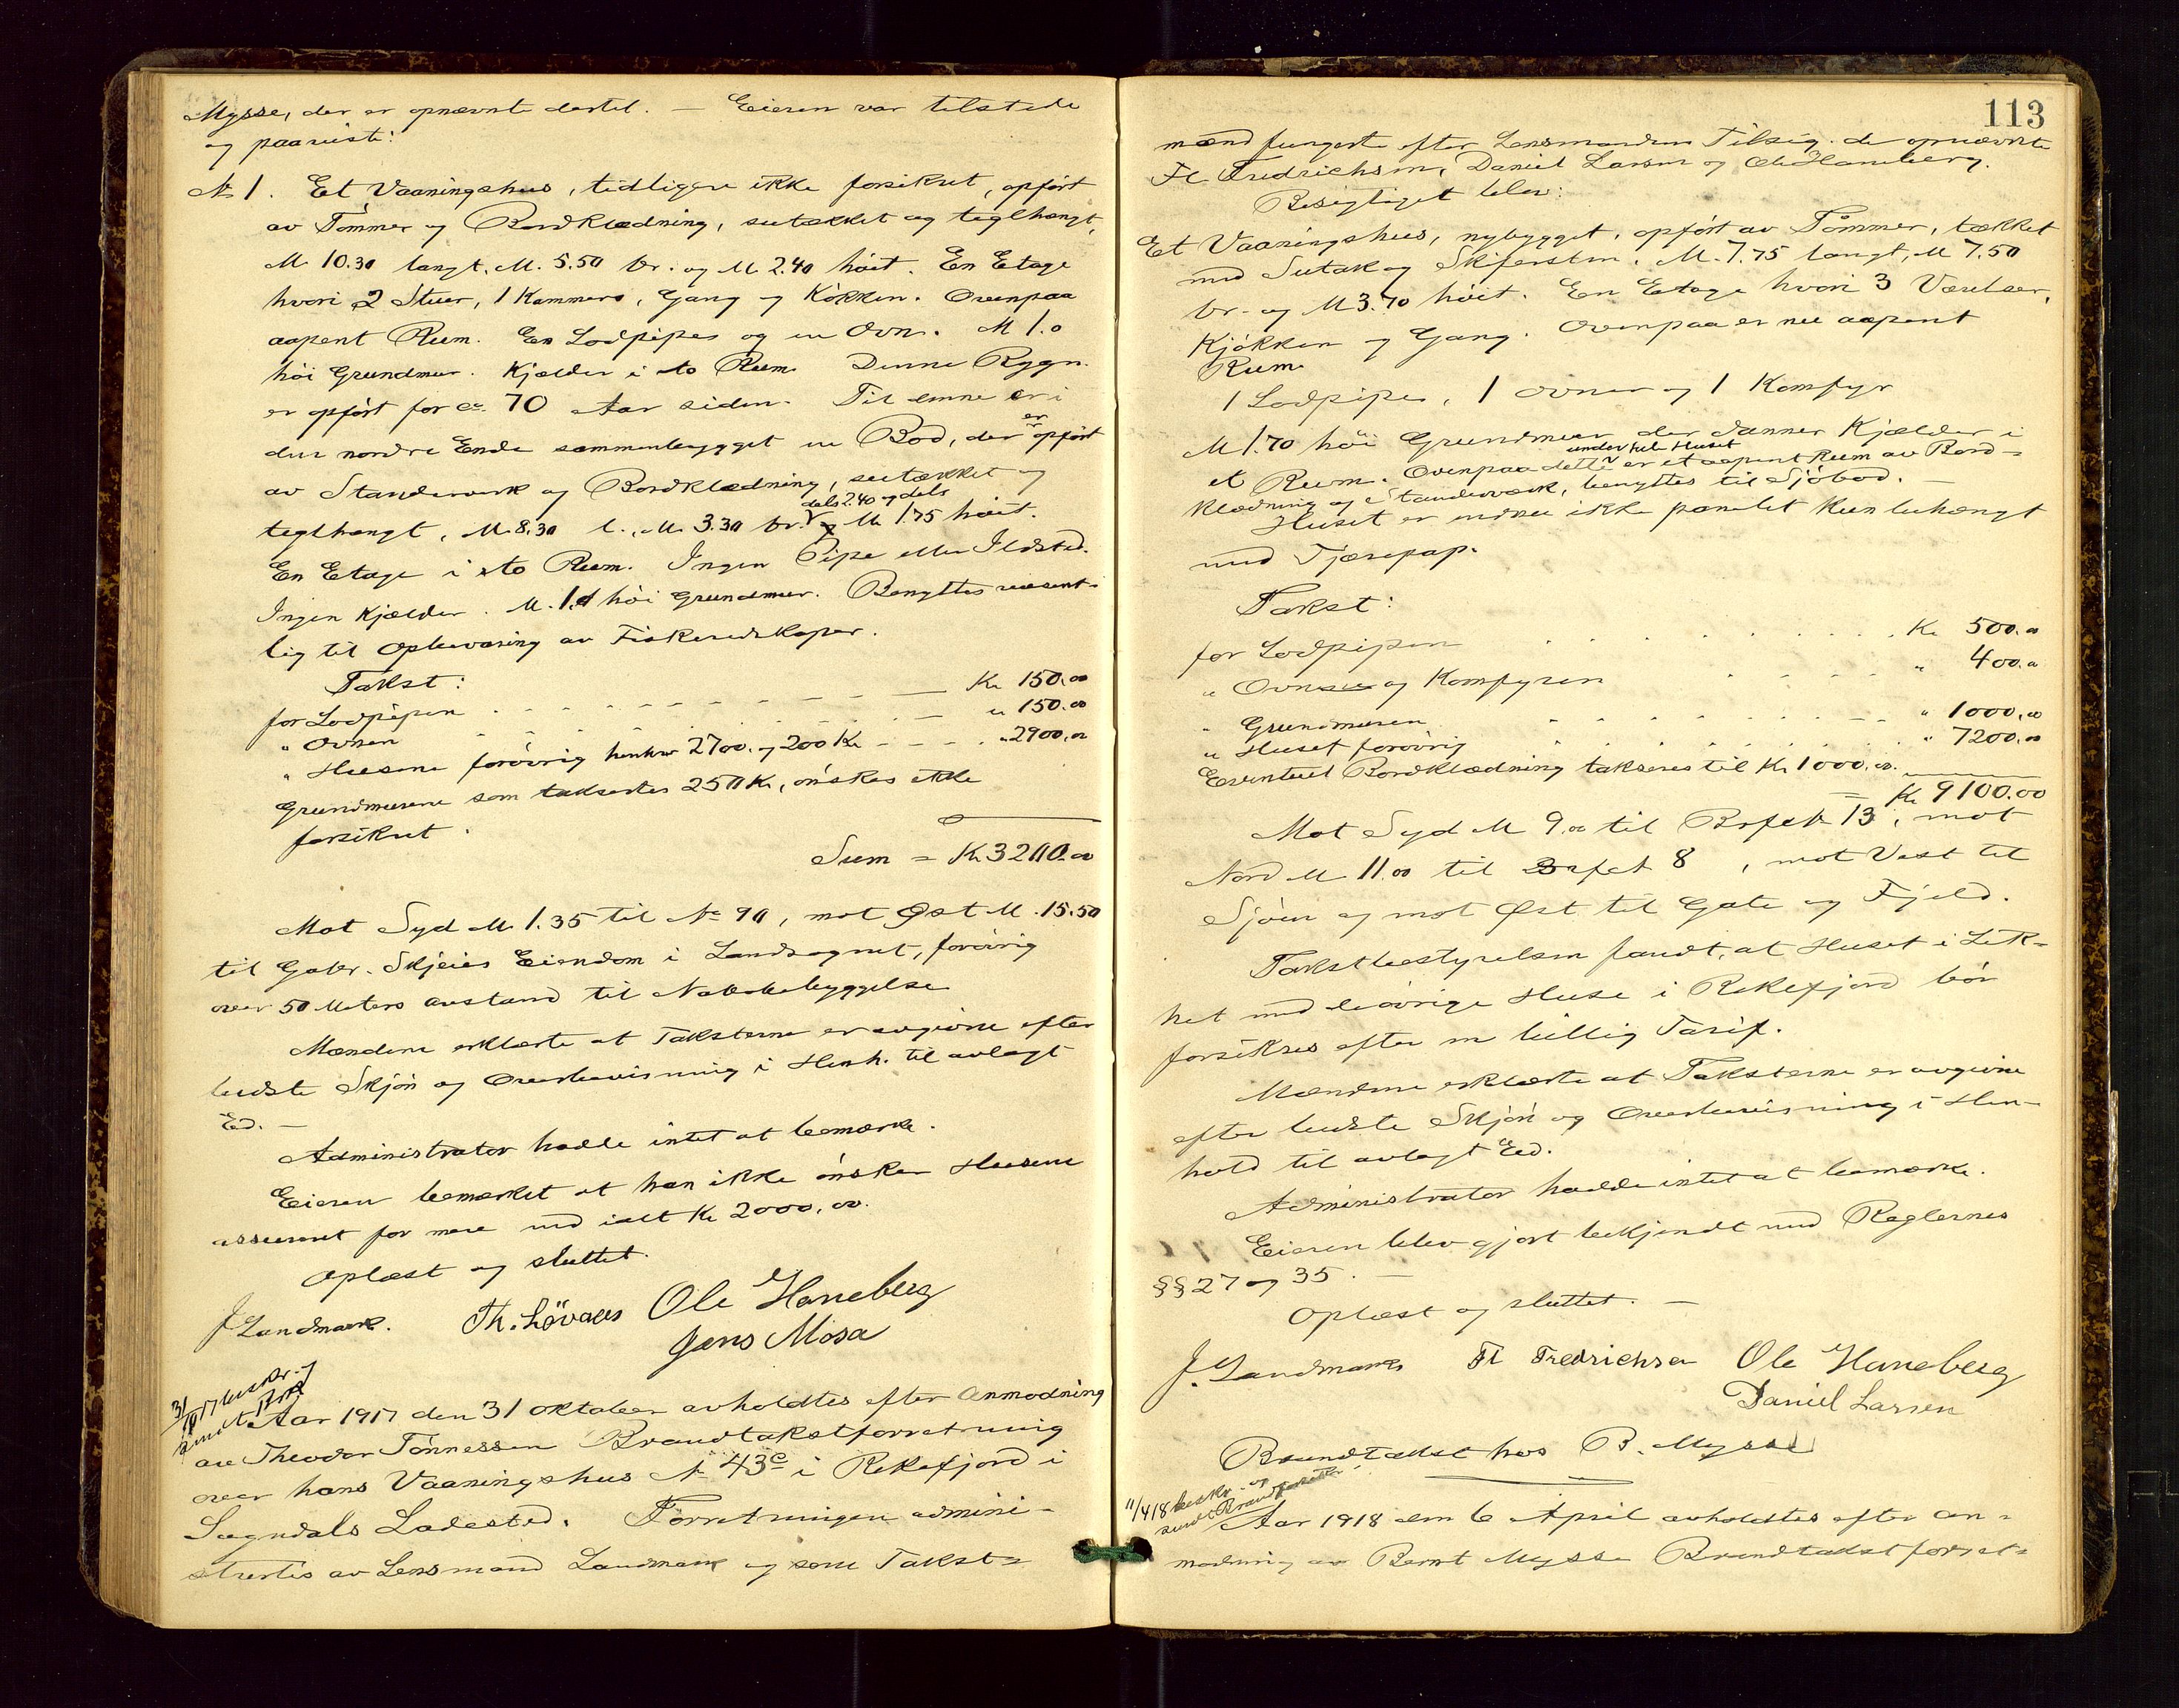 Mysse, der er opnævnte dertil. — Eieren var tilstede
og paaviste:
No 1. Et Vaaningshus, tidligere ikke forsikret, opført
av Tømmer og Bordklædning, sutækket og teglhængt,
M 10.30 langt, M. 5.50 br. og M 2.40 høit. En Etage
hvori 2 Stuer, 1 Kammers, Gang og Køkken. Ovenpaa
aapent Rum. En Lodpipe og en Ovn. M 1.0
høi Grundmur. Kjælder i to Rum. Denne Bygn.
er opført for ca. 70 Aar siden. Til denne er i
den nordre Ende sammenbygget en Bod, der er opført
av Standerverk og Bordklædning, sutækket og
teglhængt, M. 8.30 l., M. 3.30 br. dels 2.40 og dels M 1.75 høit.
En Etage i to Rum. Ingen Pipe eller Ildsted.
Ingen Kjælder. M. 1.0 høi Grundmur. Benyttes væsent-
lig til Opbevaring av Fiskeredskaper.
Takst:
for Lodpipen Kr 150.00
" Ovnen " 150.00
" Husene forøvrig henhv 2700. og 200 Kr " 2900.00
Grundmurene som takseres 250 Kr, ønskes ikke
forsikret.
Sum = Kr. 3200.00
Mot Syd M. 1.35 til No 90, mot Øst M. 15.50
til Gabr. Skjeies Eiendom i Landsognet, forøvrig
over 50 Meters avstand til Nabobebyggelse
Mændene erklærte at Taksterne er avgivne efter
bedste Skjøn og Overbevisning i Henh. til avlagt
Ed. —
Administrator hadde intet at bemærke.
Eieren bemærket at han ikke ønsker Husene
assurert for mere end ialt Kr 2000.00.
Oplæst og sluttet.
J Landmark. Th. Lövaas Ole Haneberg
Jens Mosa
31/10 17 beskr. og
sendt Brkf
Aar 1917 den 31 oktober avholdtes efter Anmodning
av Theodor Tønnessen Brandtakstforretning
over hans Vaaningshus No 43c i Rekefjord i
Sogndals Ladested. Forretningen admini-
strertes av Lensmand Landmark og som Takst-
113
mænd fungerte efter Lensmandens Tilsig. de opnævnte
Fl Fredrichsen, Daniel Larsen og Ole Haneberg.
Besigtiget blev:
Et Vaaningshus, nybygget, opført av Tømmer, tækket
med Sutak og Skifersten. M. 7.75 langt, M 7.50
br. og M 3.70 høit. En Etage hvori 3 Værelser,
Kjøkken og Gang. Ovenpaa er nu aapent
Rum.
1 Lodpipe, 1 Ovn og 1 Komfyr
M 1.70 høi Grundmur der danner Kjælder i
et Rum. Ovenpaa dette under hele Huset er et aapent Rum av Bord-
klædning og Standerværk, benyttes til Sjøbod. —
Huset er endnu ikke panelet kun behængt
med Tjærepap.
Takst:
for Lodpipen Kr 500.00
" Ovnen og Komfyren " 400.00
" Grundmuren " 1000.00
" Huset forøvrig " 7200.00
Eventuel Bordklædning takseres til Kr 1000.00.
= Kr 9100.00
Mot Syd M 9.00 til Brfet 13, mot
Nord M 11.00 til Brfet 8, mot Vest til
Sjøen og mot Øst til Gate og Fjeld.
Takstbestyrelsen fandt, at Huset i Lik-
het med de øvrige Huse i Rekefjord bør
forsikres efter en billig Tarif.
Mændene erklærte at Taksterne er avgivne
efter bedste Skjøn og Overbevisning i Hen-
hold til avlagt Ed.
Administrator hadde intet at bemærke.
Eieren blev gjort bekjendt med Reglernes
§§ 27 og 35. —
Oplæst og sluttet. —
J. Landmark Fl Fredrichsen Ole Haneberg
Daniel Larsen
Brandtakst hos B. Mysse
11/4 18 beskr. og
sendt Brandforsikr.
Aar 1918 den 6 April avholdtes efter An-
modning av Bernt Mysse Brandtakstforret-